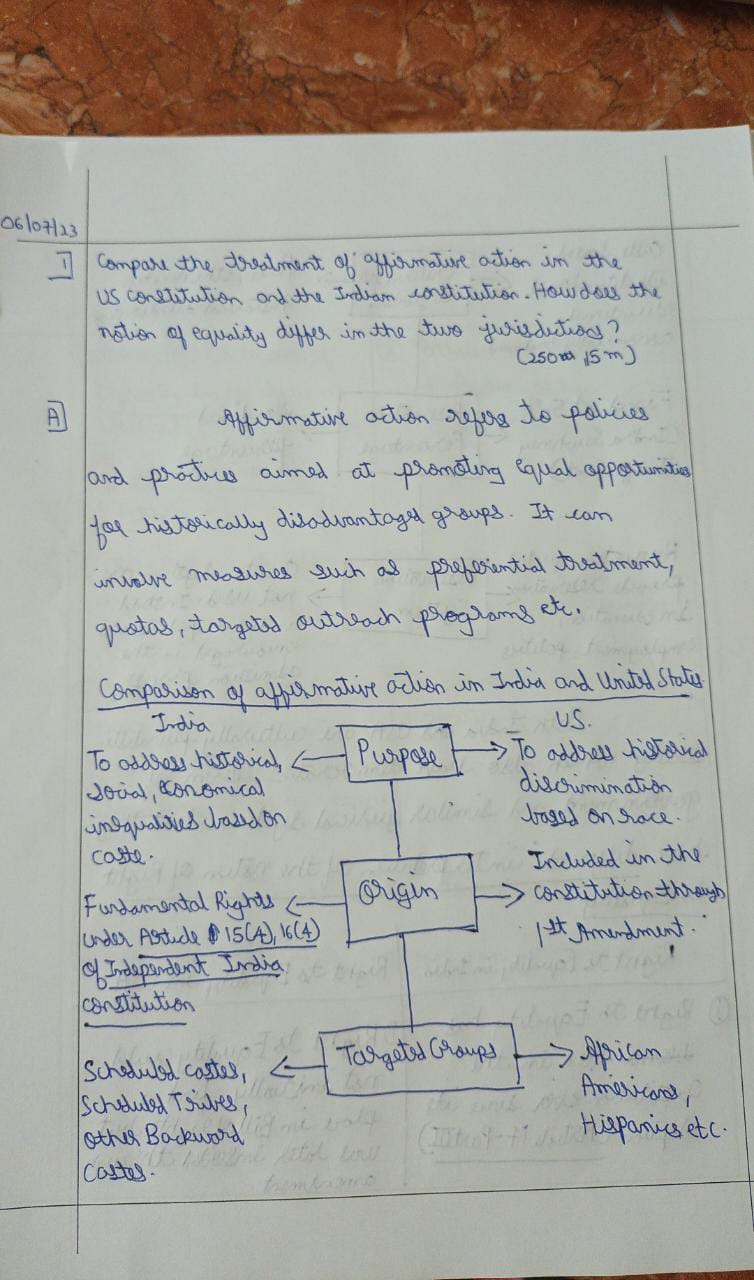 06/07/23
1] Compare the treatment of affirmative action in the
US constitution and the Indian constitution. How does the
notion of equality differ in the two jurisdictions?
(250 15m)
A] Affirmative action refers to policies
and practices aimed at promoting equal opportunities
for historically disadvantaged groups. It can
involve measures such as preferential treatment,
quotas, targeted outreach programs etc.
Comparison of affirmative action in India and United States
India
To address historical,
social, economical
inequalities based on
caste.
Purpose
US.
To address historical
discrimination
based on race.
Fundamental Rights
under Article 15(4), 16(4)
of Independent India
constitution
Origin
Included in the
constitution through
1st Amendment.
Scheduled castes,
Scheduled Tribes,
other Backward
Castes.
Targeted Groups
African
Americans,
Hispanics etc.